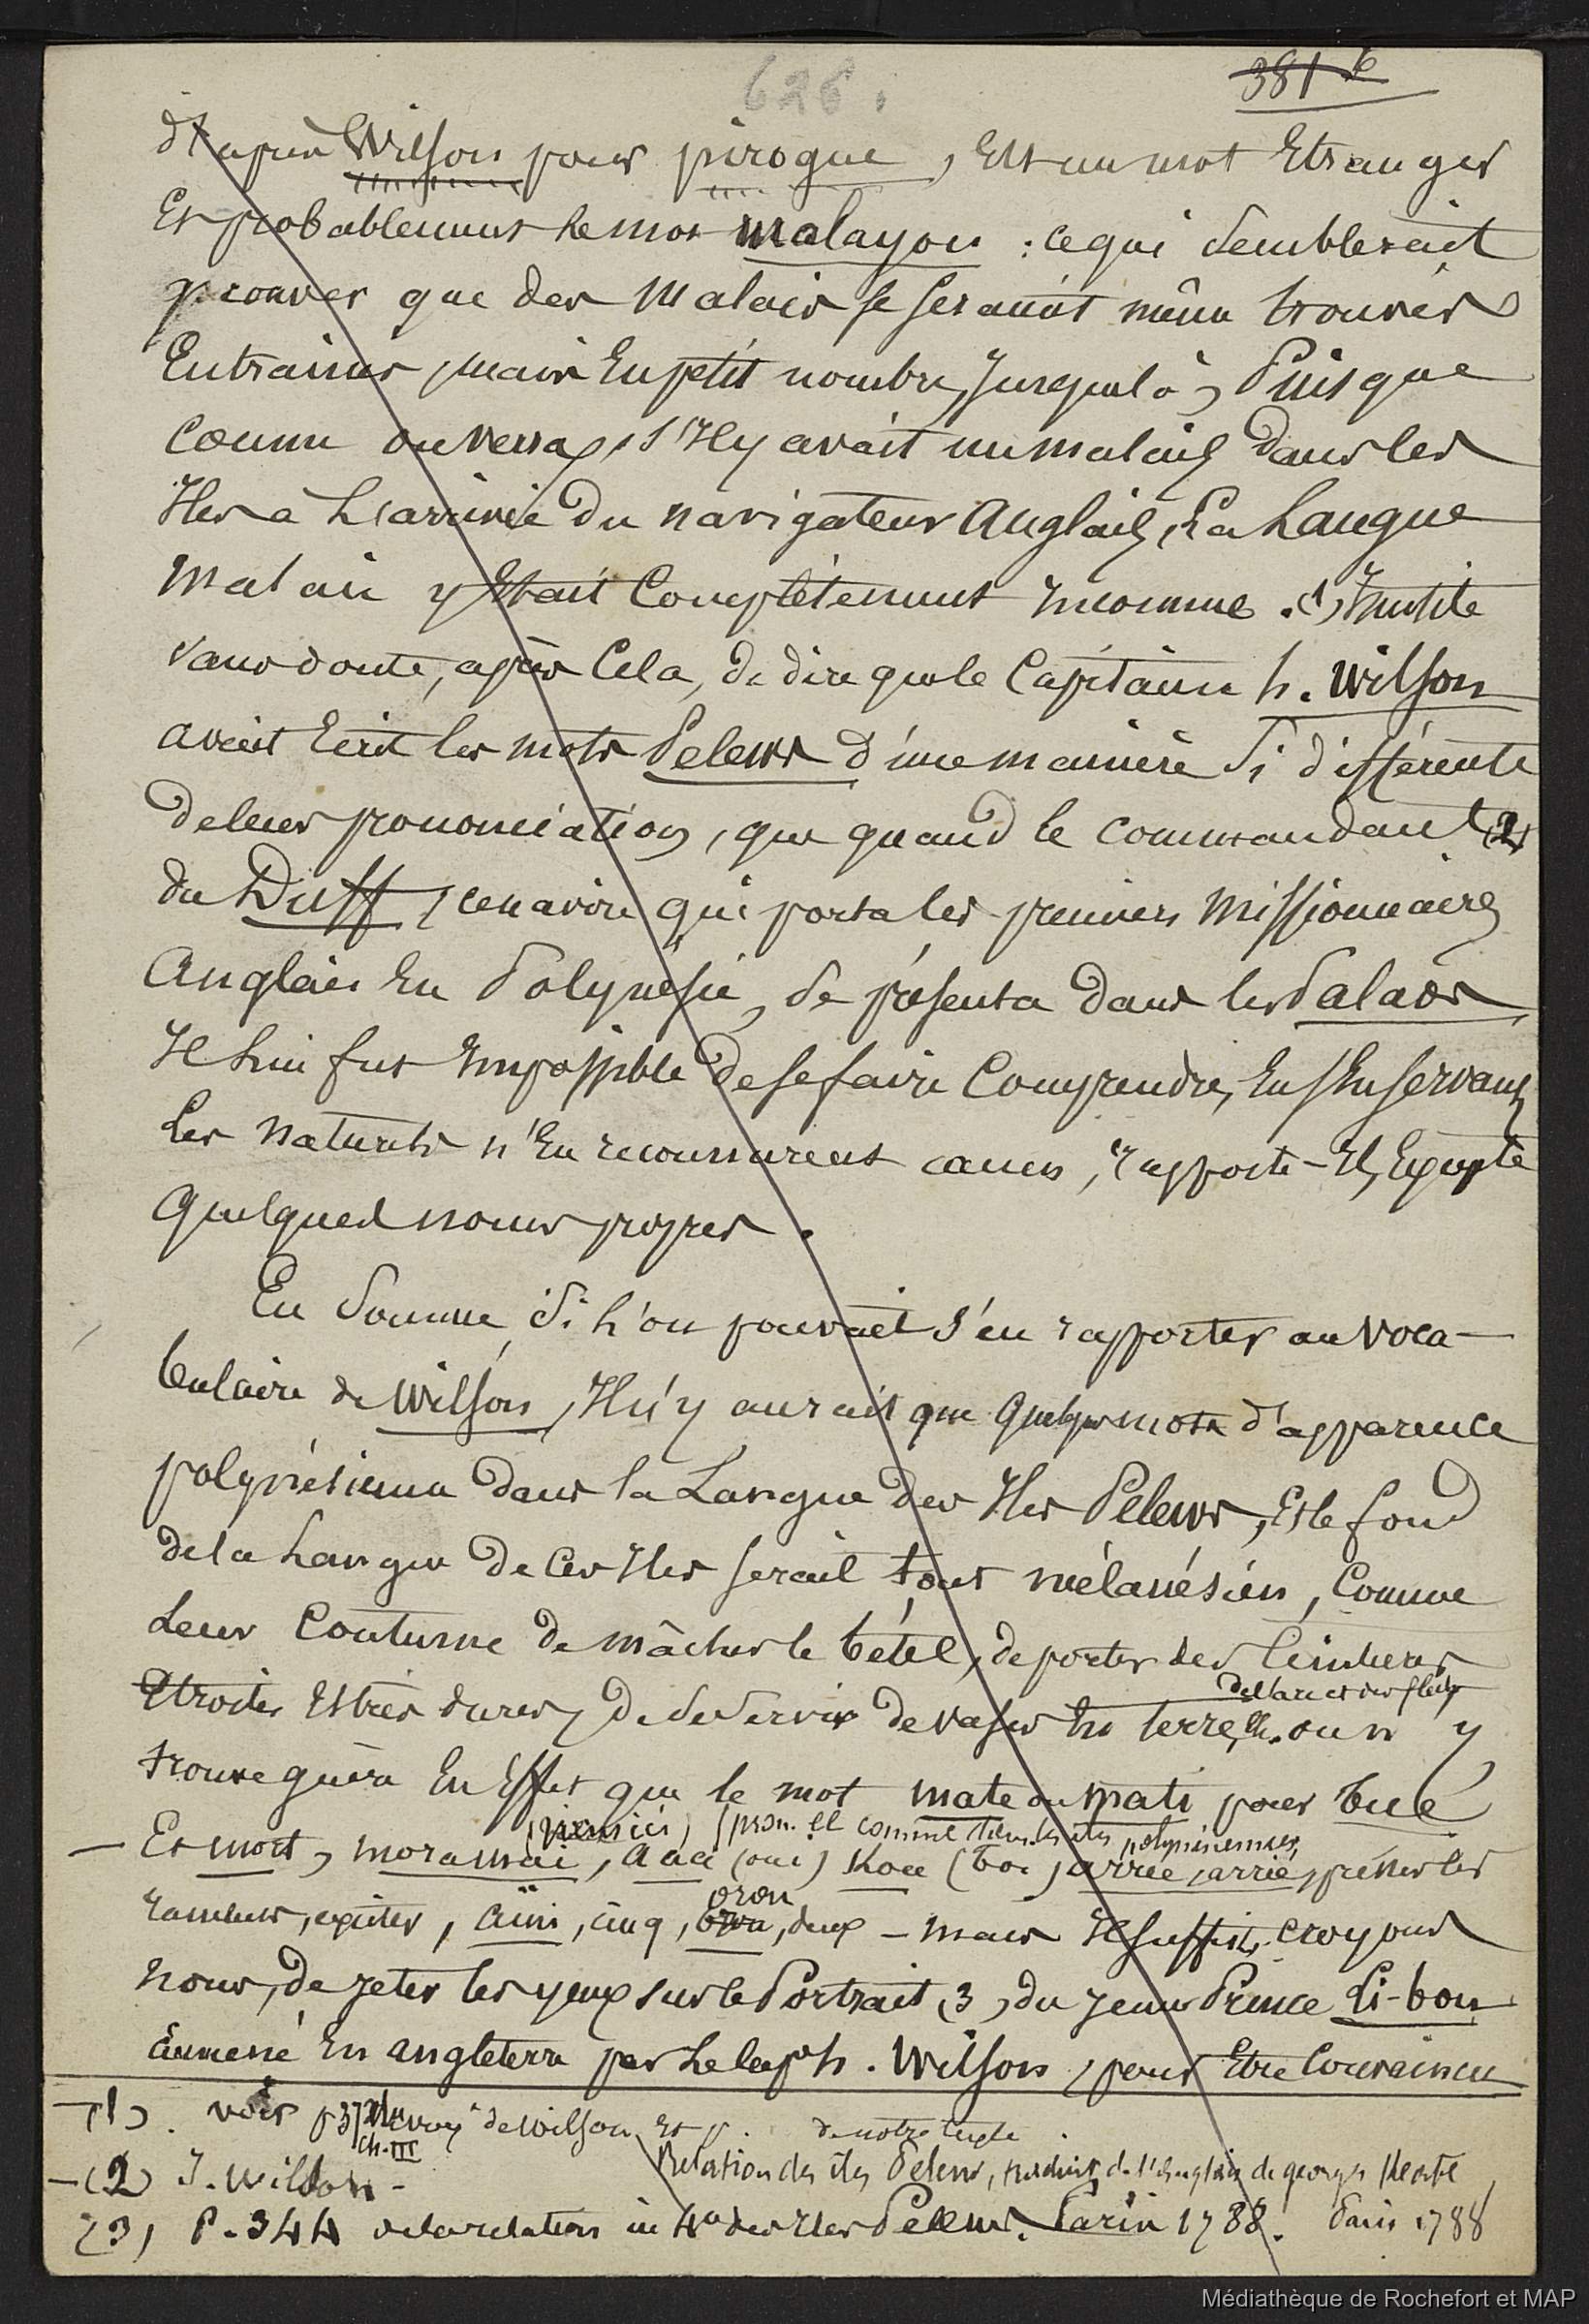 626.
381 b
d'après Wilson pour pirogue, est un mot Etranger
Et probablement le mot malayou : ce qui semblerait
prouver que des Malais se seraient même trouvés
Entrainés, mais En petit nombre, Jusque là, Puisque
comme on verra, s'Il y avait un malais dans les
Iles à L'arrivée du navigateur Anglais, La Langue
Malaie y Etait Complètement Inconnue. (1) Inutile
sans doute, après Cela, de dire que le Capitaine h. Wilson
avait Ecrit les mots Pelews d'une manière si différente
de leur prononciation, que quand le commandant (2)
du Duff, ce navire qui porta les premiers Missionnaires
Anglais En Polynésie, se présenta dans les Palaos
Il Lui fut Impossible de se faire Comprendre, En s'En servant
Les naturels n'En reconnurent aucun, rapporte-Il, Excepté
Quelques noms propres.
En Somme, Si L'on pouvait s'en rapporter au voca-
bulaire de Wilson, Il n'y aurait que quelques mots d'apparence
polynésienne dans la Langue des Iles Pelews, Et le fond
de la Langue de Ces Iles serait tout mélanésien, Comme
Leur Coutume de mâcher le bétel, de porter des Ceintures
Etroites Et très dures, de se servir de vases En terre, &. on n'y
de l'arc et des flèches
trouve guère En Effet que le mot mate ou mati pour tué
(pron. ee comme dans les iles polynésiennes,
— Et mort, moramai, aaa (oui) Koee (toi) arree, arrie, prêter les
rameurs, exciter, aïni, cinq, orou, deux — mais Il suffit, croyons
nous, de jeter les yeux sur le Portrait (3) du jeune Prince Li-bou
amené En angleterre par Le cap. h. Wilson, pour Etre Convaincu
— (1). voir p 37 voy. de Wilson, Et p. de notre texte.
ch. III
— (2) J. Wilson -
Relation des iles Pelew, traduit de l'Anglais de georges Keate
(3) P. 344 de la relation in 4° des Iles Pelew. Paris 1788. Paris 1788
Médiathèque de Rochefort et MAP